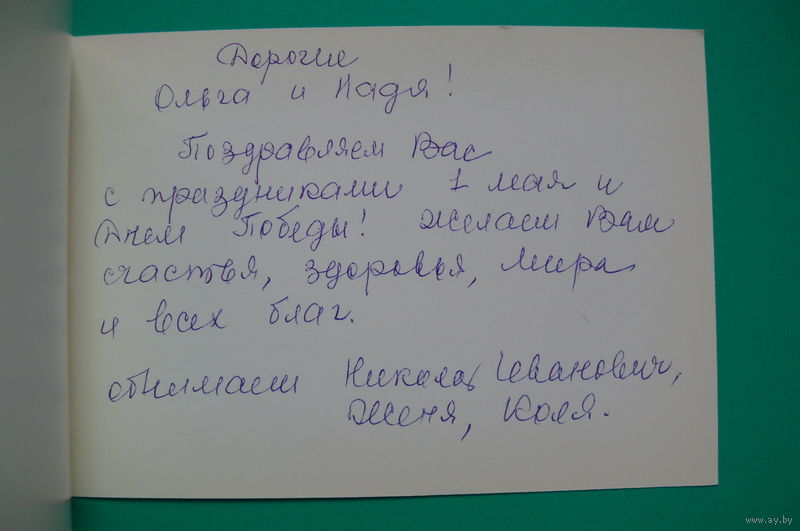 Дорогие
Ольга и Надя!
Поздравляем Вас
с праздниками 1 мая и
Днем Победы! Желаем Вам
счастья, здоровья, мира
и всех благ.
обнимаем Николай Иванович,
Женя, Коля.
www.ay.by